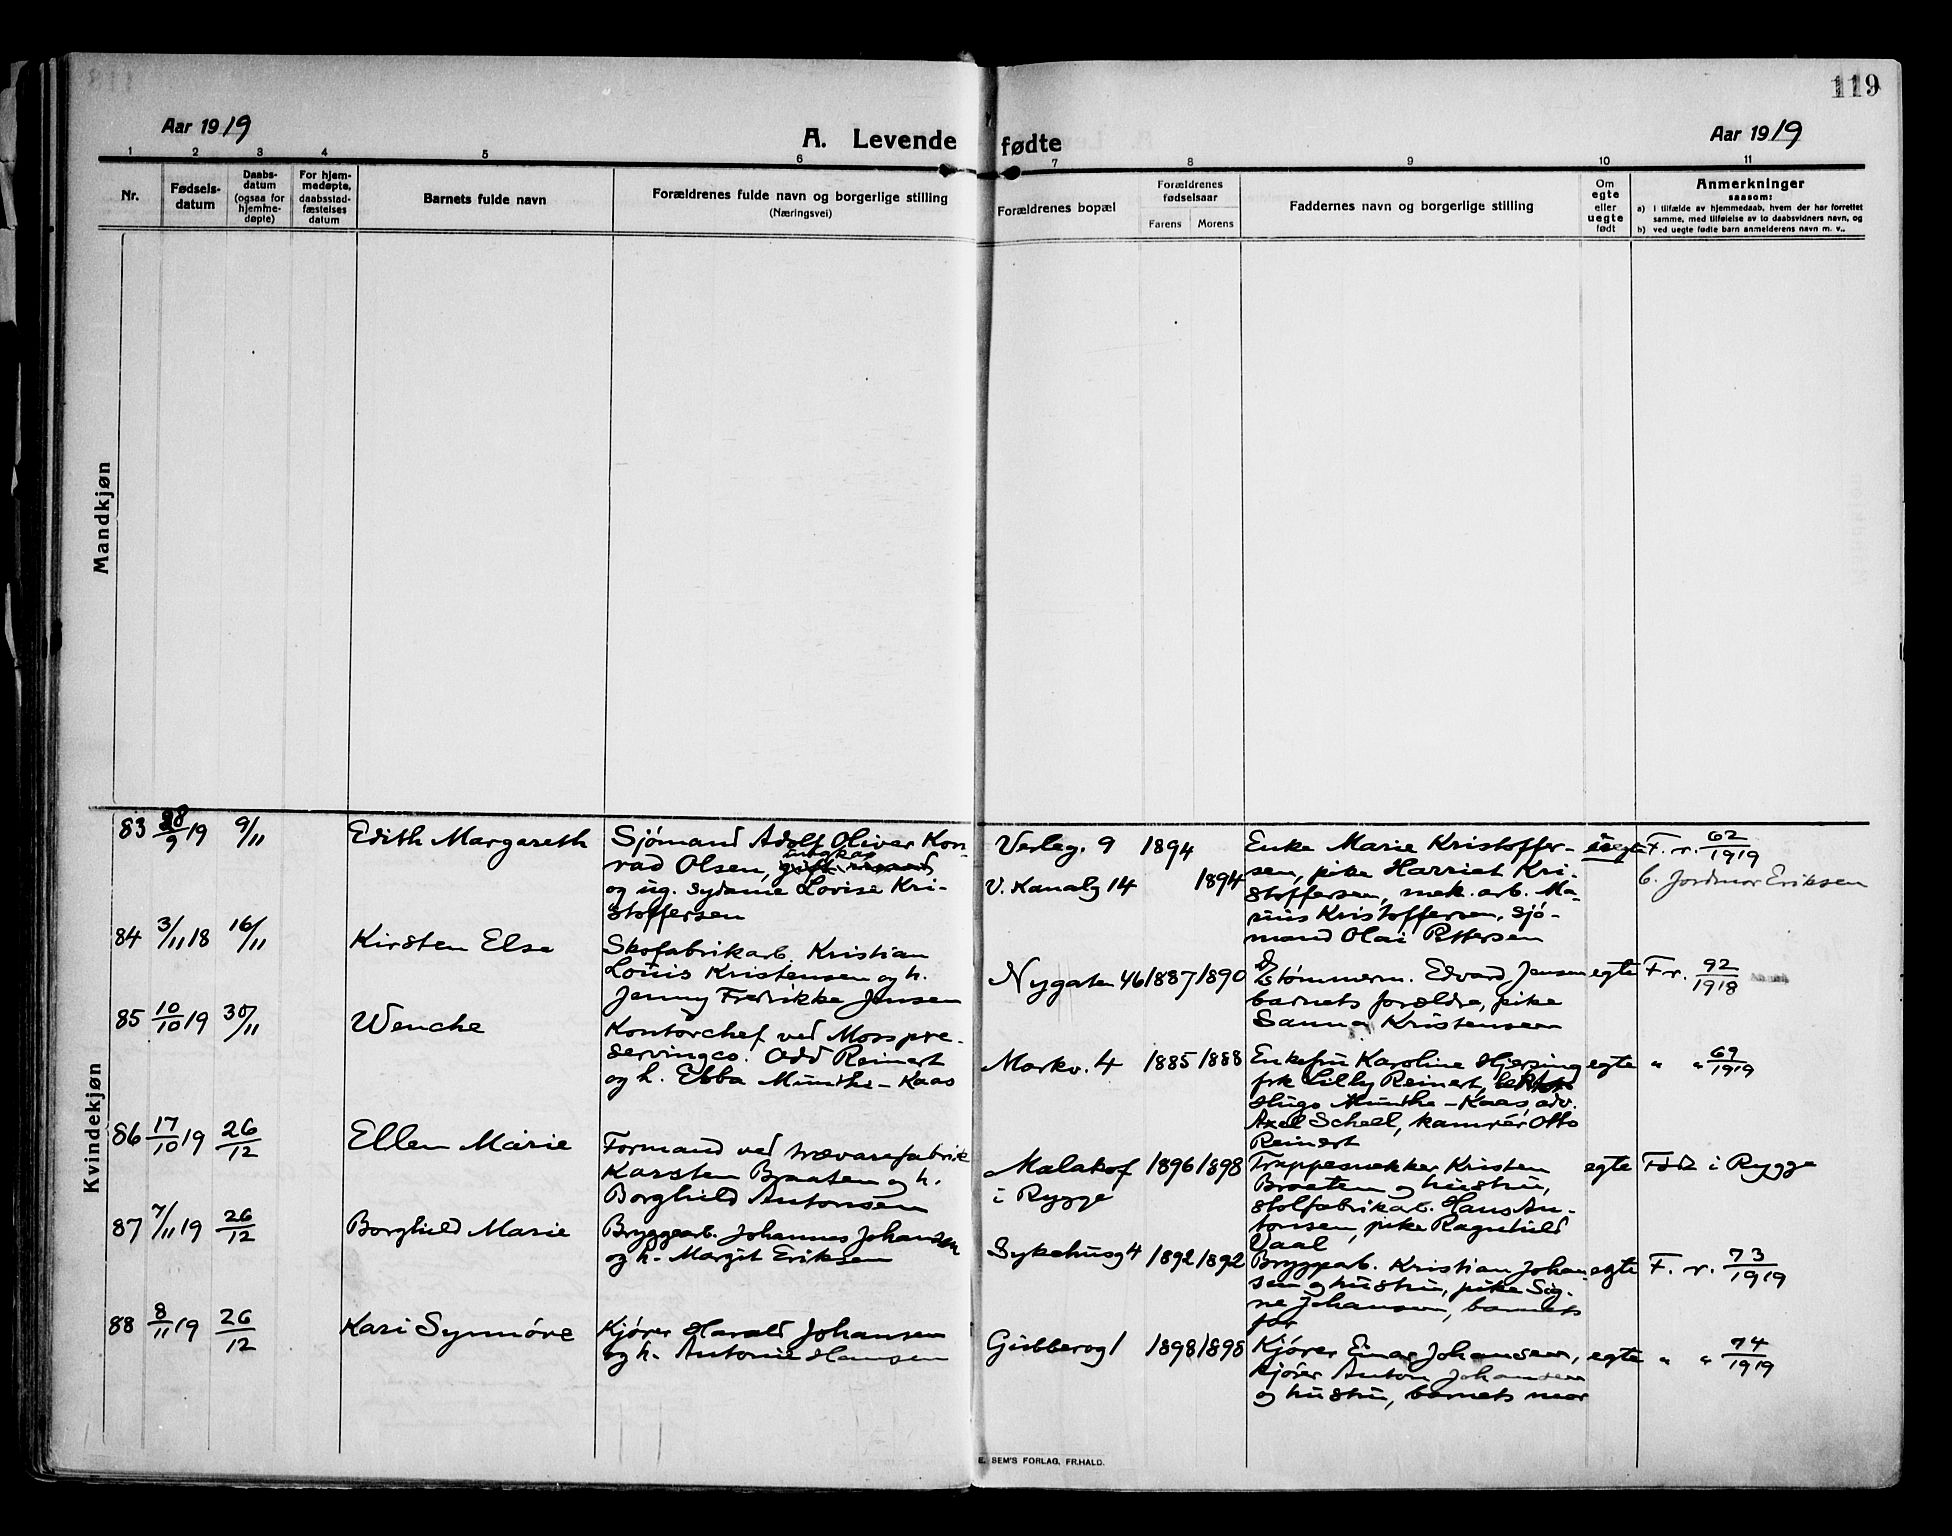 119
Aar 1919
A. Levende fødte
Aar 1919
1 2 3 4 5 6 7 8 9 10 11
Nr.
Fødsels-
datum
Daabs-
datum
(ogsaa for
hjemme-
døpte)
For hjem-
medøpte,
daabsstad-
fæstelses
datum
Barnets fulde navn
Forældrenes fulde navn og borgerlige stilling
(Næringsvei)
Forældrenes bopæl
Forældrenes
fødselsaar
Farens Morens
Faddernes navn og borgerlige stilling
Om
egte
eller
uegte
født
Anmerkninger
saasom:
a) i tilfælde av hjemmedaab, hvem der har forrettet
samme, med tilføielse av to daabsvidners navn, og
b) ved uegte fødte barn anmelderens navn m. v..
Mandkjøn
Kvindekjøn
83 28/9 19 9/11 Edith Margareth
Sjømand Adolf Oliver Kon-
rad Olsen, ungkar
og ug. sydame Lovise Kri-
stoffersen
Verleg. 9 1894
V. Kanalg 14 1894
Enke Marie Kristoffer-
sen, pike Harriet Kri-
stoffersen, mek. arb. Ma-
rius Kristoffersen, sjø-
mand Olai Pettersen
uegte
F. r. 62/1919
b. Jordmor Eriksen
84 3/11 18 16/11 Kirsten Else
Skofabrikarb. Kristian
Louis Kristensen og h.
Jenny Fredrikke Jensen
Nygaten 46 1887 1890
Tømmerm. Edvard Jensen
barnets forældre, pike
Sanna Kristensen
egte
F r. 92/1918
85 10/10 19 30/11 Wenche
Kontorchef ved Moss pre-
servingco. Odd Reinert
og h. Ebba Munthe-Kaas
Markv. 4 1885 1888
Enkefru Karoline Hjersing
frk Lilly Reinert,
Hugo Munthe-Kaas, adv.
Axel Scheel, kamrér Otto
Reinert
egte
" " 69/1919
86 17/10 19 26/12 Ellen Marie
Formand ved trævarefabrik
Karsten Braaten og h.
Borghild Antonsen
Malakof
i Rygge
1896 1898
Trappesnekker Kristen
Braaten og hustru,
stolfabrikarb. Hans An-
tonsen, pike Ragnhild
Vaal
egte
Født i Rygge
87 7/11 19 26/12 Borghild Marie
Bryggearb. Johannes Johansen
og h. Margit Eriksen
Sykehusg 4 1892 1892
Bryggarb. Kristian Johan
sen og hustru, pike Sig-
ne Johansen, barnets
far
egte
F. r. 73/1919
88 8/11 19 26/12 Kari Synnøve
Kjører Harald Johansen
og h. Antonie Hansen
Gubberog 1 1898 1898
Kjører Einar Johansen,
Kjører Anton Johansen
og hustru, barnets mor
egte
" " 74/1919
E. SEM'S FORLAG, FR.HALD.